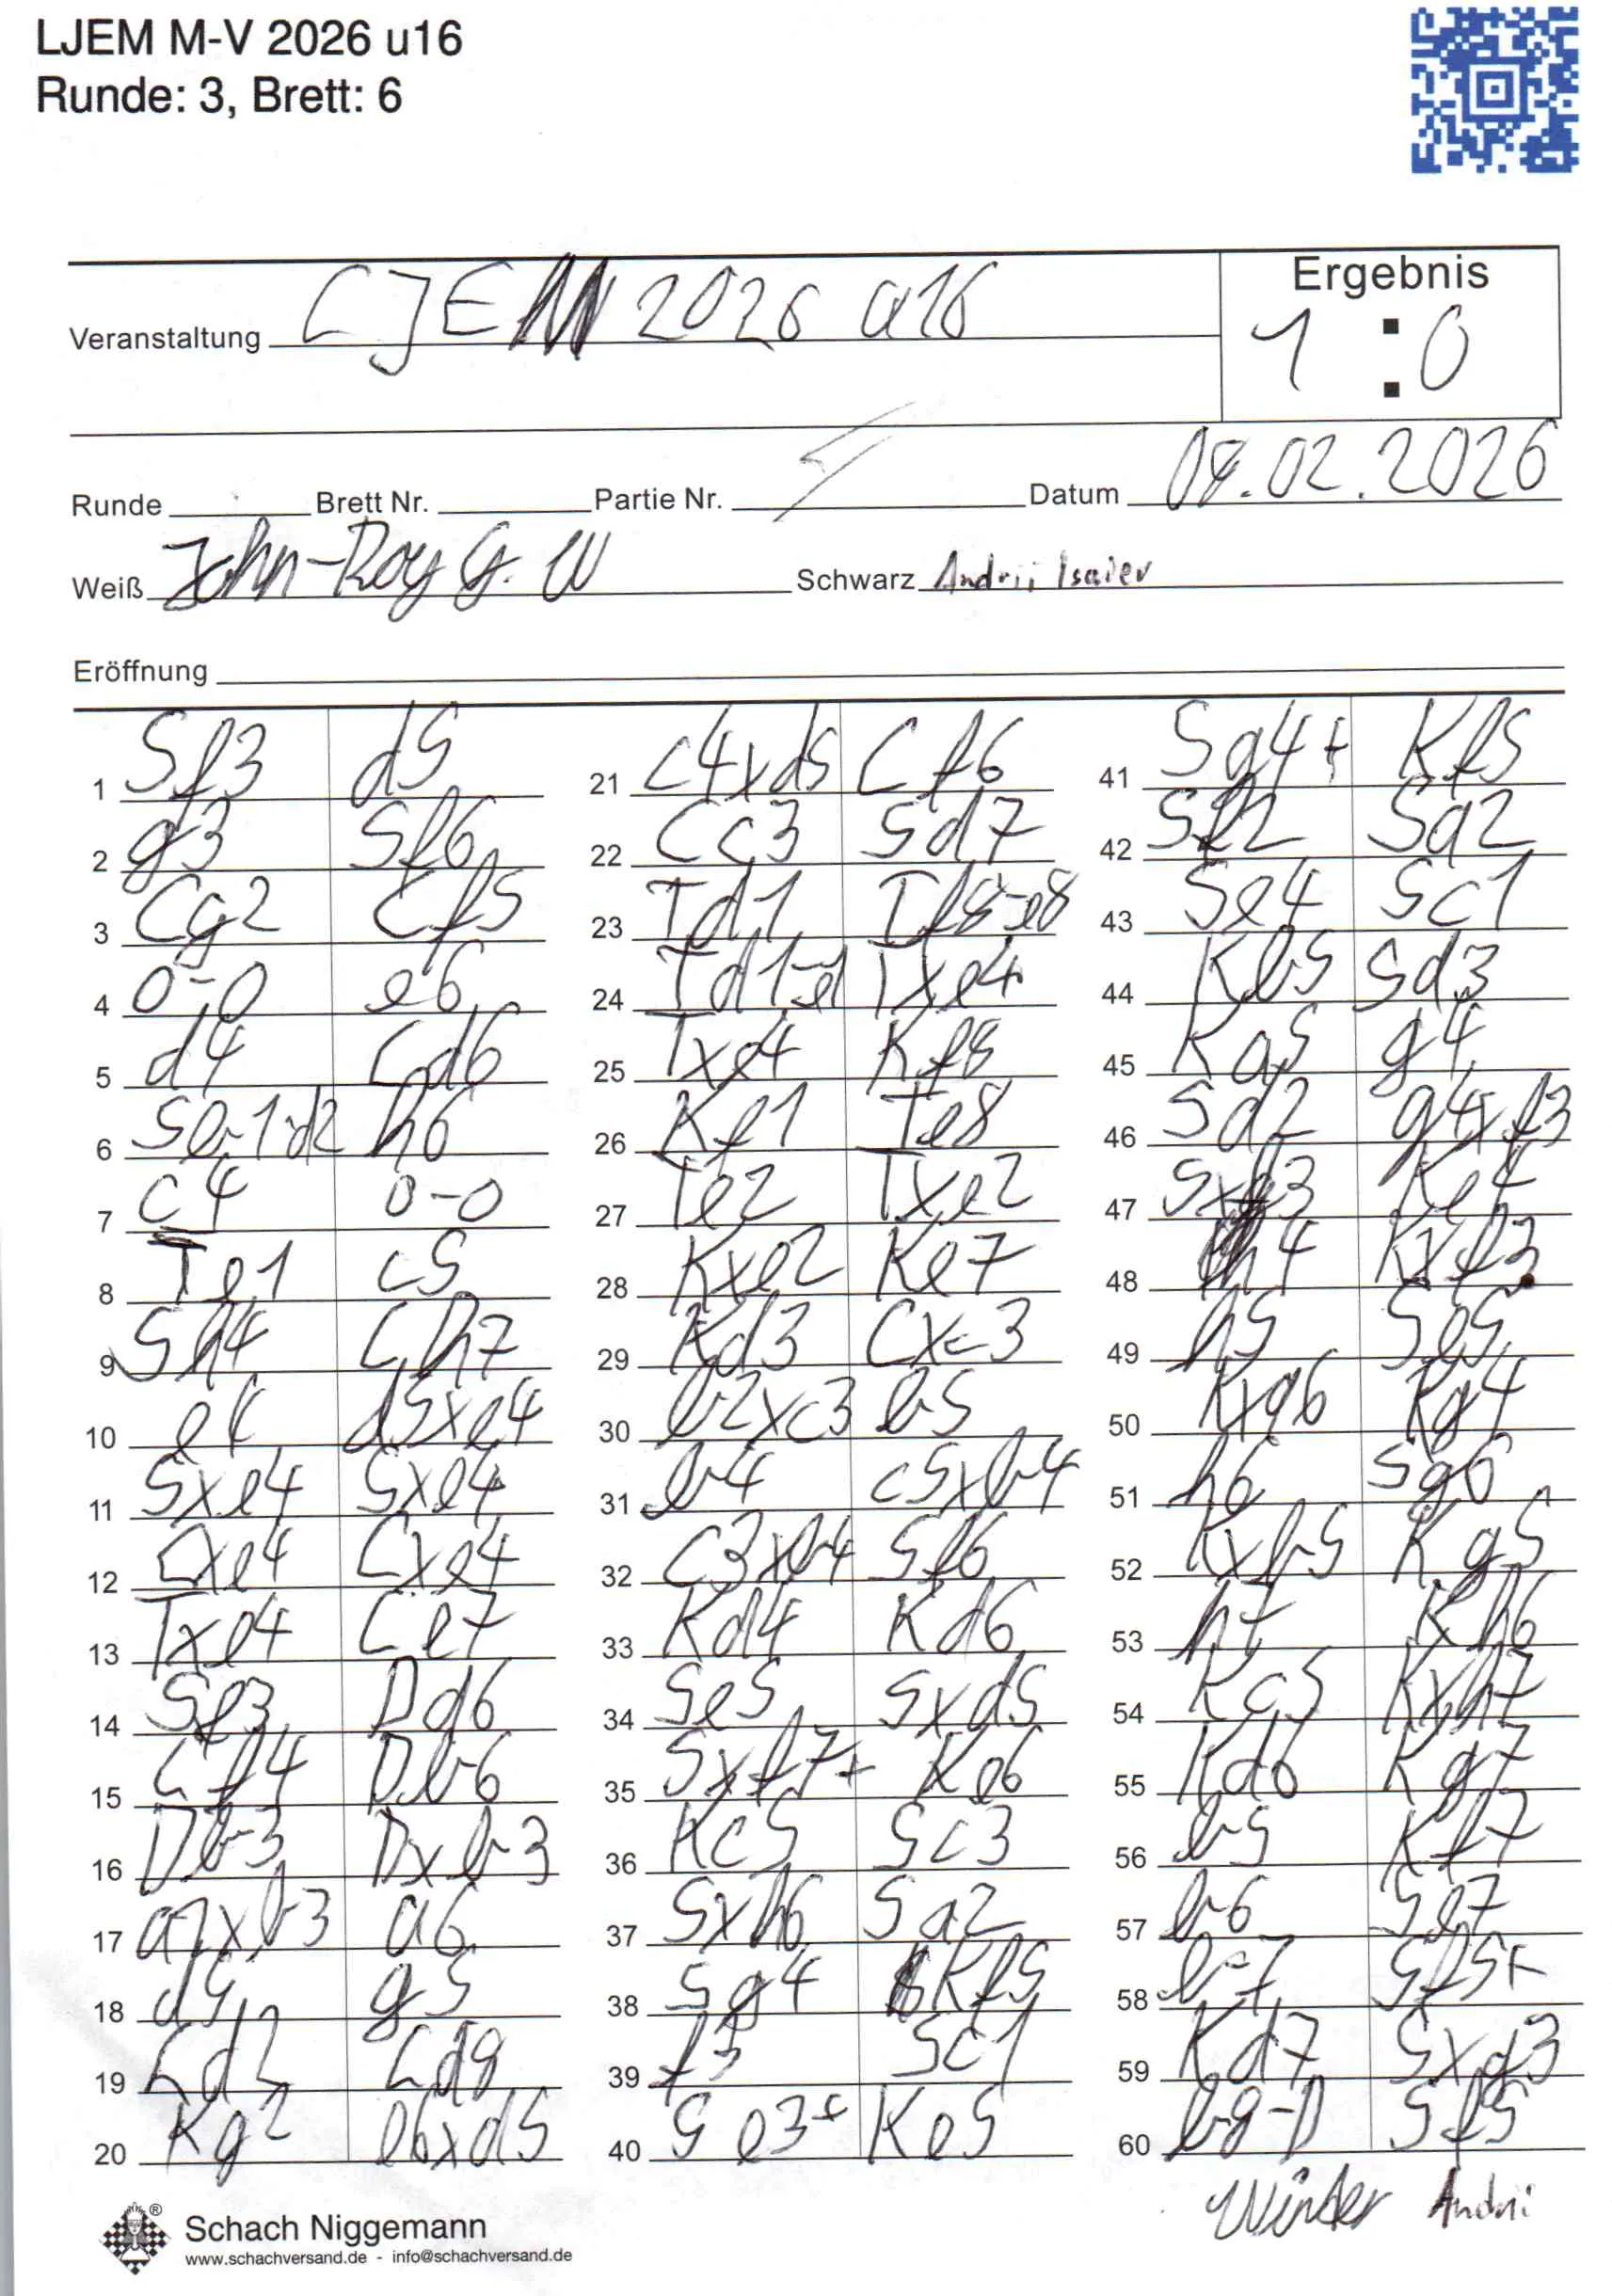 LJEM M-V 2026 u16
Runde: 3, Brett: 6
Veranstaltung LJEM 2026 u16
Ergebnis
1 : 0
Runde Brett Nr. Partie Nr. Datum 04.02.2026
Weiß John-Roy G. W Schwarz Andrii Isaiev
Eröffnung
1 Sf3 d5
2 g3 Sf6
3 Lg2 Lf5
4 0-0 e6
5 d4 Ld6
6 Sb1d2 h6
7 c4 0-0
8 Te1 c5
9 Sh4 Lh7
10 e4 d5xe4
11 Sxe4 Sxe4
12 Lxe4 Lxe4
13 Txe4 Le7
14 Sf3 Dd6
15 Lf4 Db6
16 Db3 Dxb3
17 a2xb3 a6
18 d5 g5
19 Ld2 Ld8
20 Kg2 e6xd5
21 c4xd5 Lf6
22 Lc3 Sd7
23 Td1 Tf8-e8
24 Td1-e1 Txe4
25 Txe4 Kf8
26 Kf1 Te8
27 Te2 Txe2
28 Kxe2 Ke7
29 Kd3 Lxc3
30 b2xc3 b5
31 b4 c5xb4
32 c3xb4 Sf6
33 Kd4 Kd6
34 Se5 Sxd5
35 Sxf7+ Ke6
36 Kc5 Sc3
37 Sxh6 Sa2
38 Sg4 Kf5
39 f3 Sc1
40 Se3+ Ke5
41 Sg4+ Kf5
42 Sf2 Sa2
43 Se4 Sc1
44 Kb5 Sd3
45 Ka5 g4
46 Sd2 g4xf3
47 Sxf3 Ke4
48 h4 Kxf3
49 h5 Se5
50 Kxa6 Kg4
51 h6 Sg6
52 Kxb5 Kg5
53 h7 Kh6
54 Kc5 Kxh7
55 Kd6 Kg7
56 b5 Kf7
57 b6 Se7
58 b7 Sf5+
59 Kd7 Sxg3
60 b8-D Sf5
Winter Andrii
®
Schach Niggemann
www.schachversand.de - info@schachversand.de